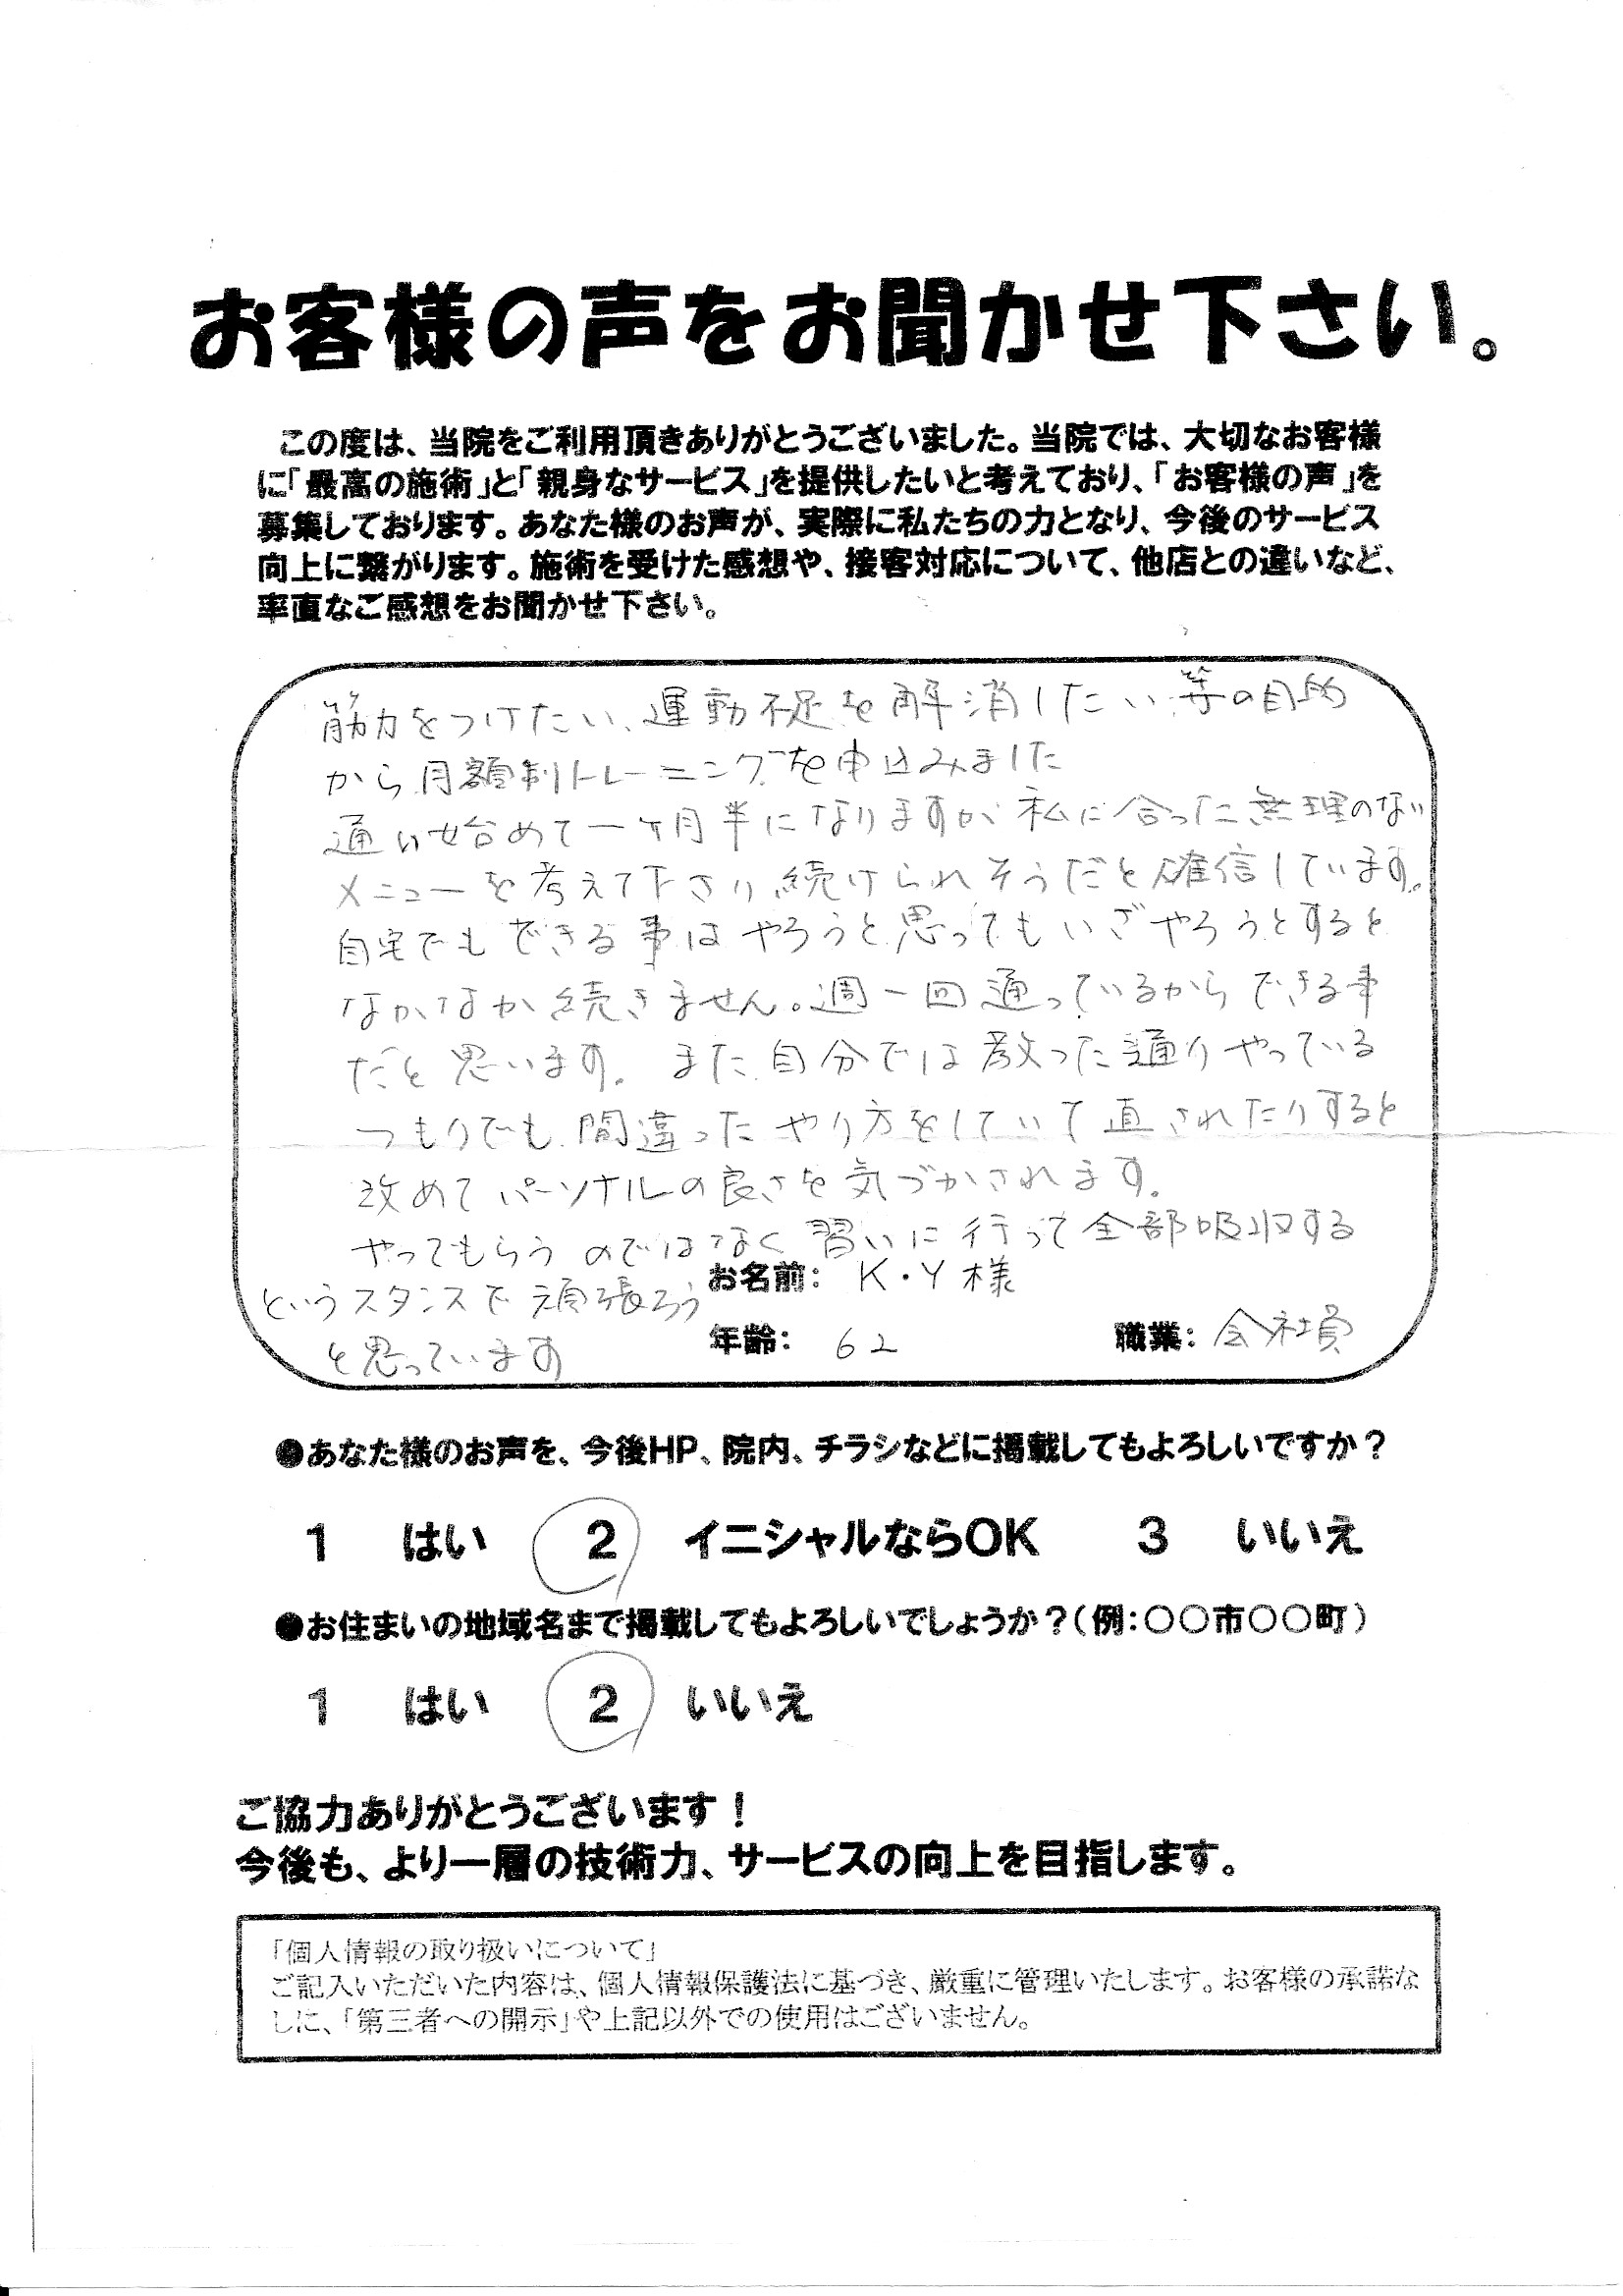 お客様の声をお聞かせ下さい。
この度は、当院をご利用頂きありがとうございました。当院では、大切なお客様
に「最高の施術」と「親身なサービス」を提供したいと考えており、「お客様の声」を
募集しております。あなた様のお声が、実際に私たちの力となり、今後のサービス
向上に繋がります。施術を受けた感想や、接客対応について、他店との違いなど、
率直なご感想をお聞かせ下さい。
筋力をつけたい、運動不足を解消したい等の目的
から月額制トレーニングを申込みました
通い始めて一ヶ月半になりますが、私に合った無理のない
メニューを考えて下さり続けられそうだと確信しています。
自宅でもできる事はやろうと思ってもいざやろうとすると
なかなか続きません。週一回通っているからできる事
だと思います。また自分では教った通りやっている
つもりでも間違ったやり方をしていて直されたりすると
改めてパーソナルの良さを気づかされます。
やってもらうのではなく習いに行って全部吸収する
というスタンスで頑張ろう
と思っています
お名前： K・Y様
年齢： 62 職業： 会社員
●あなた様のお声を、今後HP、院内、チラシなどに掲載してもよろしいですか？
1 はい 2 イニシャルならOK 3 いいえ
●お住まいの地域名まで掲載してもよろしいでしょうか？（例：〇〇市〇〇町）
1 はい 2 いいえ
ご協力ありがとうございます！
今後も、より一層の技術力、サービスの向上を目指します。
「個人情報の取り扱いについて」
ご記入いただいた内容は、個人情報保護法に基づき、厳重に管理いたします。お客様の承諾な
しに、「第三者への開示」や上記以外での使用はございません。